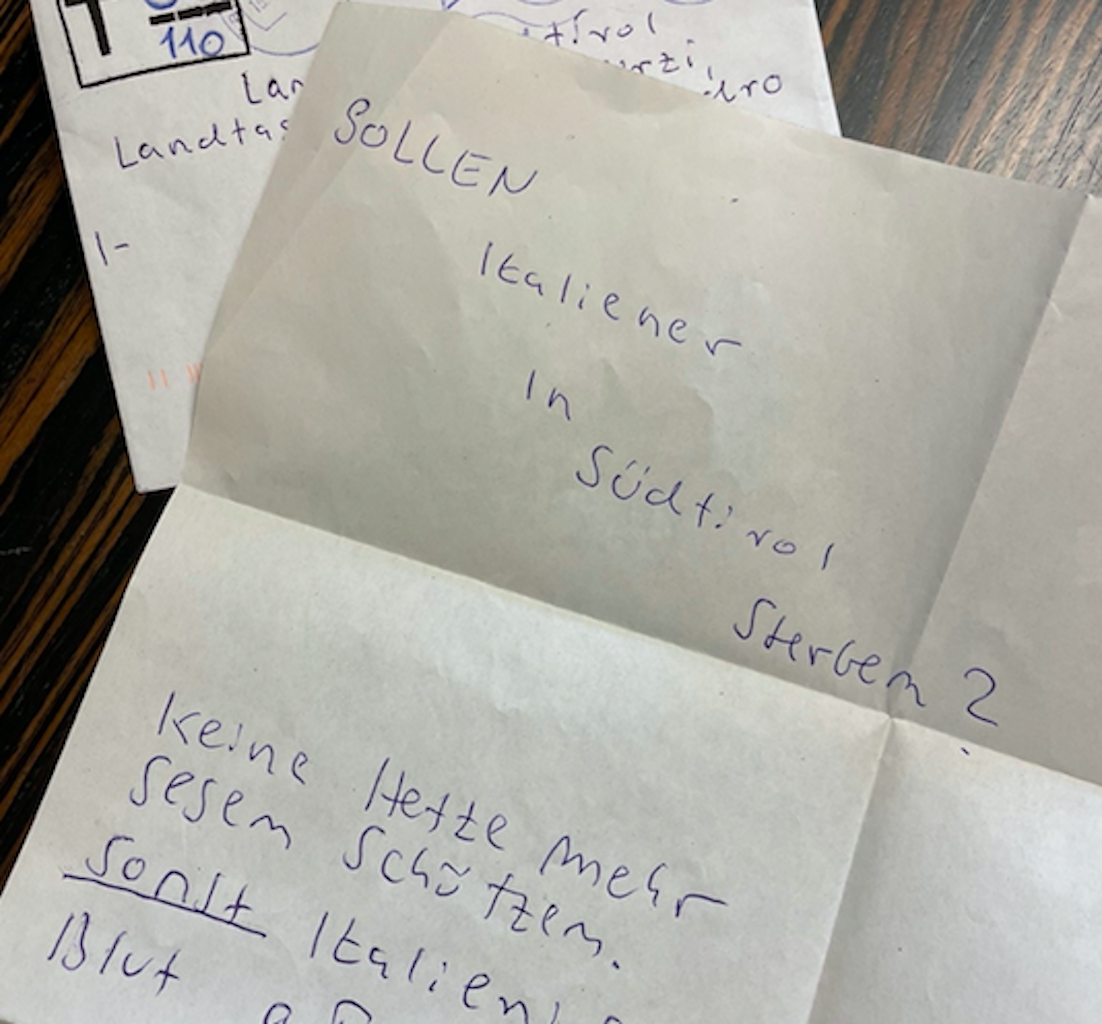 T
110
Lan
Landtag
I-
SOLLEN
Italiener
In
Südtirol
Sterben?
Keine Hetze mehr
gegen Schützen.
sonst Italien
Blut